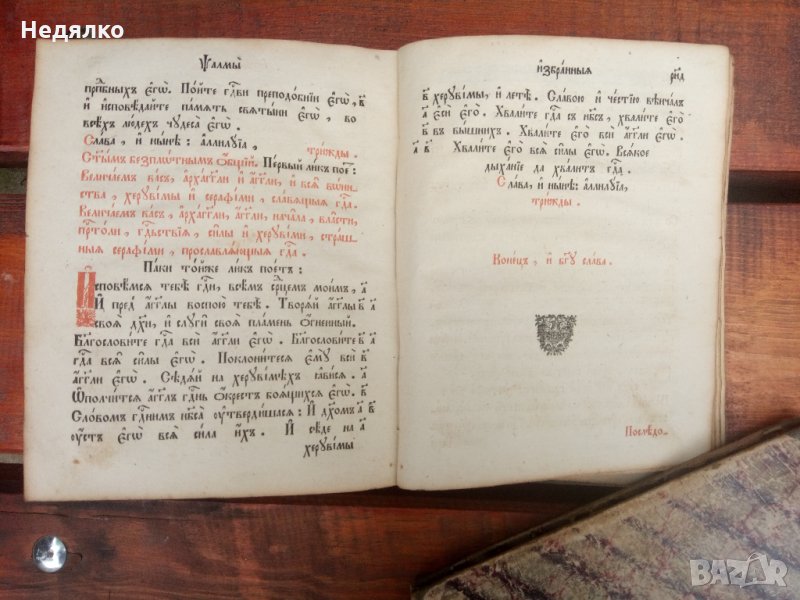 Недялко
Ѱалмы̀
прпⷣбныхъ є҆гѡ̀ . По́йте гдⷭ҇ви преподо́бнїи є҆гѡ̀ , в҃
и҆ и҆сповѣ́дайте па́мять святы́ни є҆гѡ̀ , во
всѣ́хъ лю́дехъ чудеса̀ є҆гѡ̀ .
Сла́ва , и҆ ны́нѣ : а҆ллилꙋ́їа ,
три́жды .
Ст҃ы́мъ безпло́тнымъ ѻ҆́бщїй . Пе́рвый ли́къ пое́тъ :
Велича́емъ ва́съ , а҆рха́гг҃ли и҆ а҆́гг҃ли , и҆ вся̑ во́ин
ства , херꙋві́мы и҆ серафі́ми , сла́вящыя гдⷭ҇а .
Велича́емъ ва́съ , а҆рха́гг҃ли , а҆́гг҃ли , нача́ла , вла́сти ,
прⷭ҇то́ли , гдⷭ҇ьствїя , си̑лы и҆ херꙋві́ми , стра́ш
ныя серафі́ми , прославля́ющыя гдⷭ҇а .
Па́ки то́йже ли́къ пое́тъ :
И҆сповѣ́мся тебѣ̀ гдⷭ҇и , всѣ́мъ срⷣцемъ мои́мъ , а҃
И҆ пред̾ а҆́гг҃лы воспою̀ тебѣ̀ . Творя́й а҆́гг҃лы в҃ а҃
своя̑ дх҃и , и҆ слꙋги̑ своя̑ пла́мень ѻ҆́гненный .
Блг҃ослови́те гдⷭ҇а всѝ а҆́гг҃ли є҆гѡ̀ . Блг҃ослови́те в҃
гдⷭ҇а вся̑ си̑лы є҆гѡ̀ . Поклони́теся є҆мꙋ̀ всѝ а҃
а҆́гг҃ли є҆гѡ̀ . Сѣдя́й на херꙋві́мѣхъ ꙗ҆ви́ся . в҃
Ѡ҆полчи́тся а҆́гг҃лъ гдⷭ҇ень ѻ҆́крестъ боя́щихся є҆гѡ̀ . в҃
Сло́вомъ гдⷭ҇нимъ нб҃са̀ ᲂу҆тверди́шася : И҆ дх҃омъ а҃ в҃
ᲂу҆́стъ є҆гѡ̀ вся̀ си́ла и҆́хъ . И҆ сѣ́де на а҃
херꙋві́мы
и҆збра̑нныя
рн҃д
в҃ херꙋві́мы , и҆ летѣ̀ . Сла́вою и҆ че́стїю вѣнча́лъ
а҃ є҆сѝ є҆го̀ . Хвали́те гдⷭ҇а съ нб҃съ , хвали́те є҆го̀
в҃ въ вы́шнихъ . Хвали́те є҆го̀ всѝ а҆́гг҃ли є҆гѡ̀ .
а҃ в҃ Хвали́те є҆го̀ вся̑ си̑лы є҆гѡ̀ . Вся́кое
дыха́нїе да хва́литъ гдⷭ҇а .
Сла́ва , и҆ ны́нѣ : а҆ллилꙋ́їа ,
три́жды .
Коне́цъ , и҆ бг҃ꙋ сла́ва .
Послѣ́до..
BAZAR